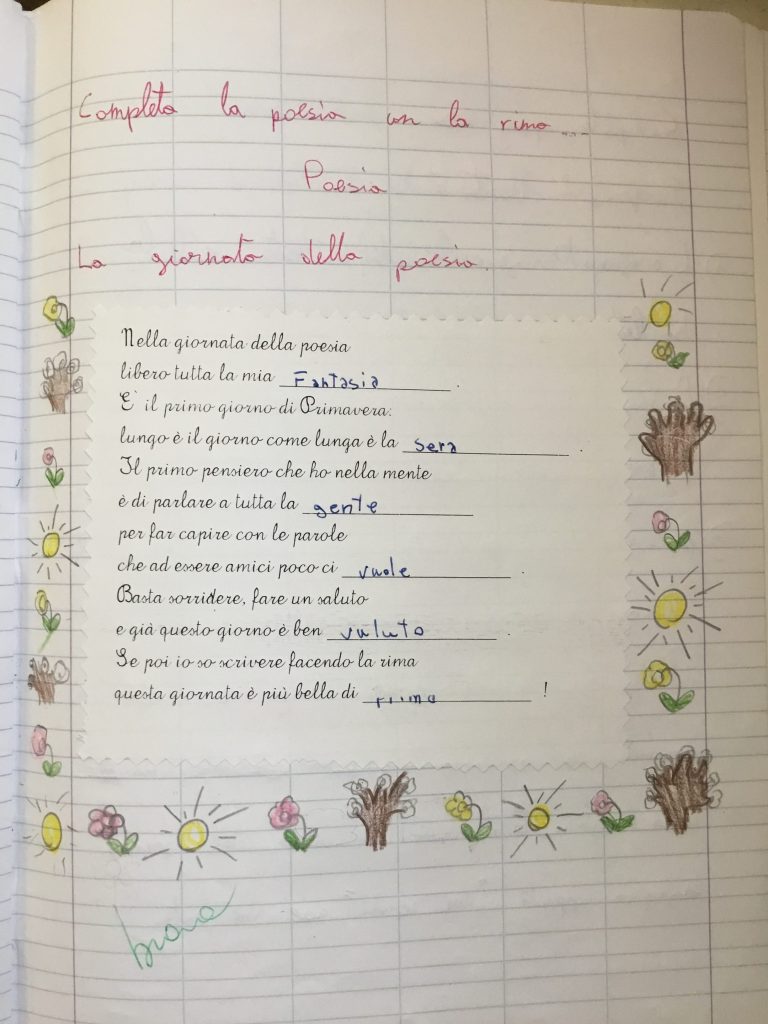 Completa la poesia con la rima...
Poesia
La giornata della poesia.
Nella giornata della poesia
libero tutta la mia Fantasia.
E' il primo giorno di Primavera:
lungo è il giorno come lunga è la sera.
Il primo pensiero che ho nella mente
è di parlare a tutta la gente
per far capire con le parole
che ad essere amici poco ci vuole.
Basta sorridere, fare un saluto
e già questo giorno è ben valuto.
Se poi io so scrivere facendo la rima
questa giornata è più bella di rima!
brava